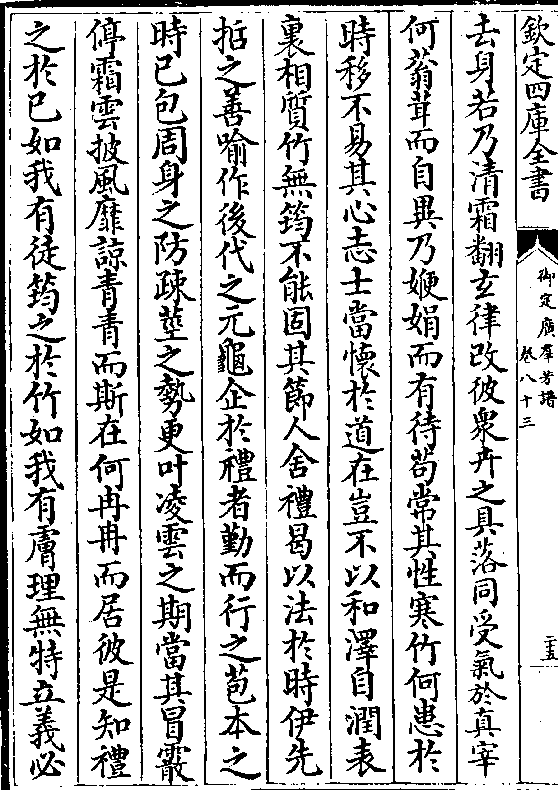 欽定四庫全書
御定廣羣芳譜
卷八十三
二十五
去身若乃清霜翻玄律改彼衆卉之具落同受氣於真宰
何蓊茸而自異乃㛹娟而有待苟常其性寒竹何患於
時移不易其心志士當懷於道在豈不以和澤自潤表
裏相質竹無筠不能固其節人舍禮曷以法於時伊先
括之善喻作後代之元龜企於禮者勤而行之苞本之
時已包周身之防疎莖之勢更叶凌雲之期當其冒霰
停霜雲披風靡諒青青而斯在何冉冉而居彼是知禮
之於已如我有徒筠之於竹如我有膚理無特立義必